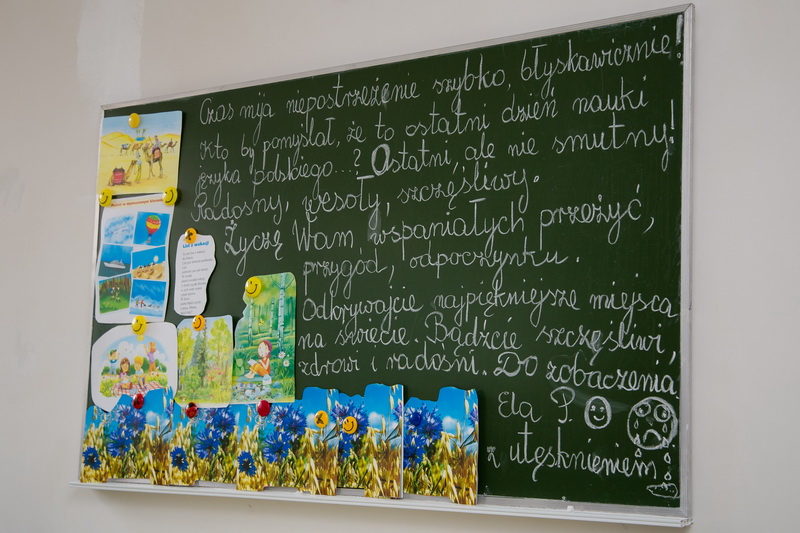 Czas mija niepostrzeżenie szybko, błyskawicznie!
Kto by pomyślał, że to ostatni dzień nauki
języka polskiego...? Ostatni, ale nie smutny!
Radosny, wesoły, szczęśliwy.
Życzę Wam wspaniałych przeżyć,
przygód, odpoczynku.
Odkrywajcie najpiękniejsze miejsca
na świecie. Bądźcie szczęśliwi,
zdrowi i radośni. Do zobaczenia
Ela P.
z utęsknieniem
List z wakacji